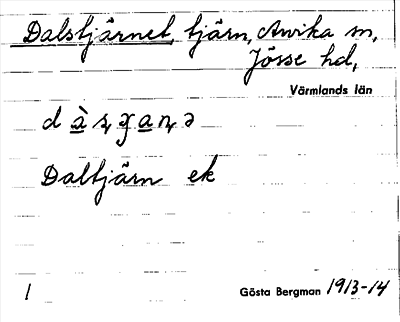 Dalstjärnet, tjärn, Arvika m,
Jösse hd,
Värmlands län
Daltjärn ek
1 Gösta Bergman 1913-14